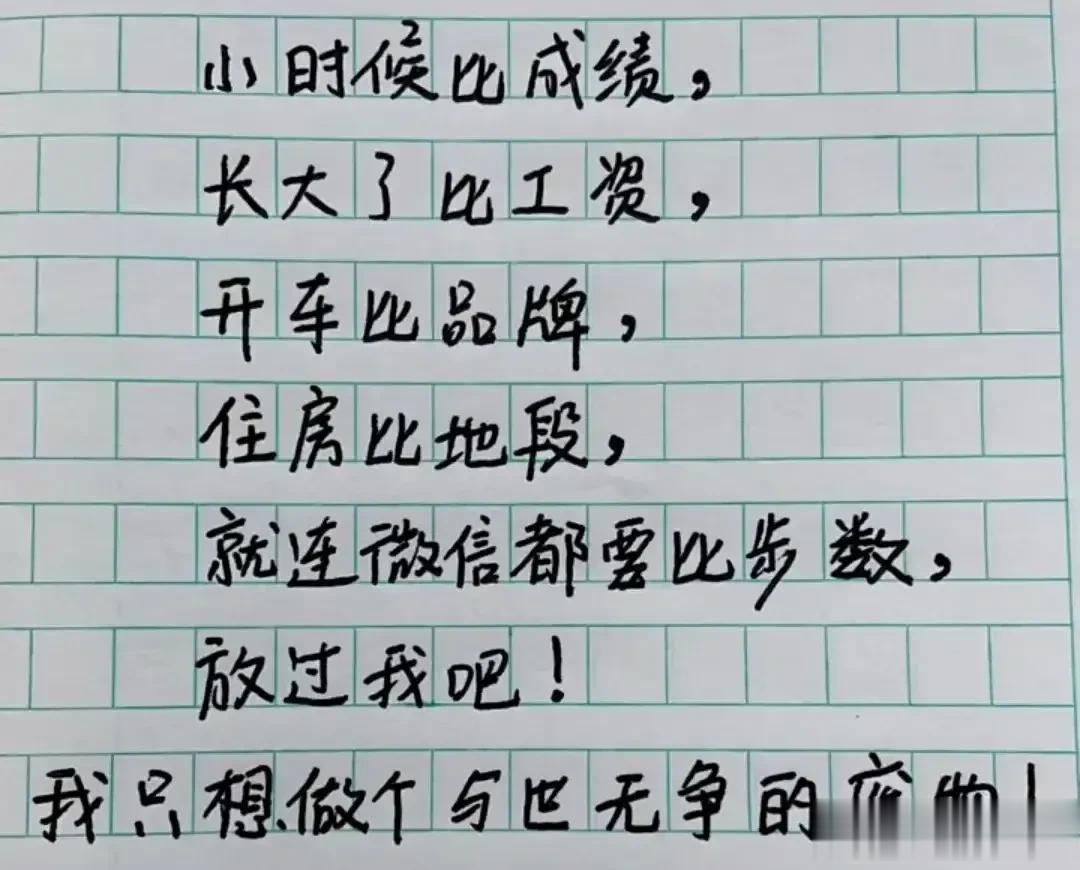 小时候比成绩，
长大了比工资，
开车比品牌，
住房比地段，
就连微信都要比步数，
放过我吧！
我只想做个与世无争的废物！